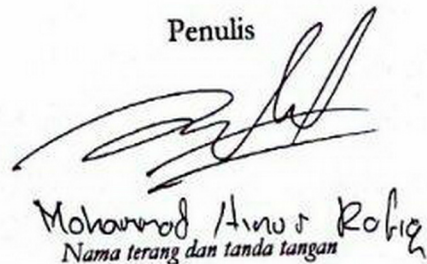 Penulis
Mohammad Rofiq
Nama terang dan tanda tangan